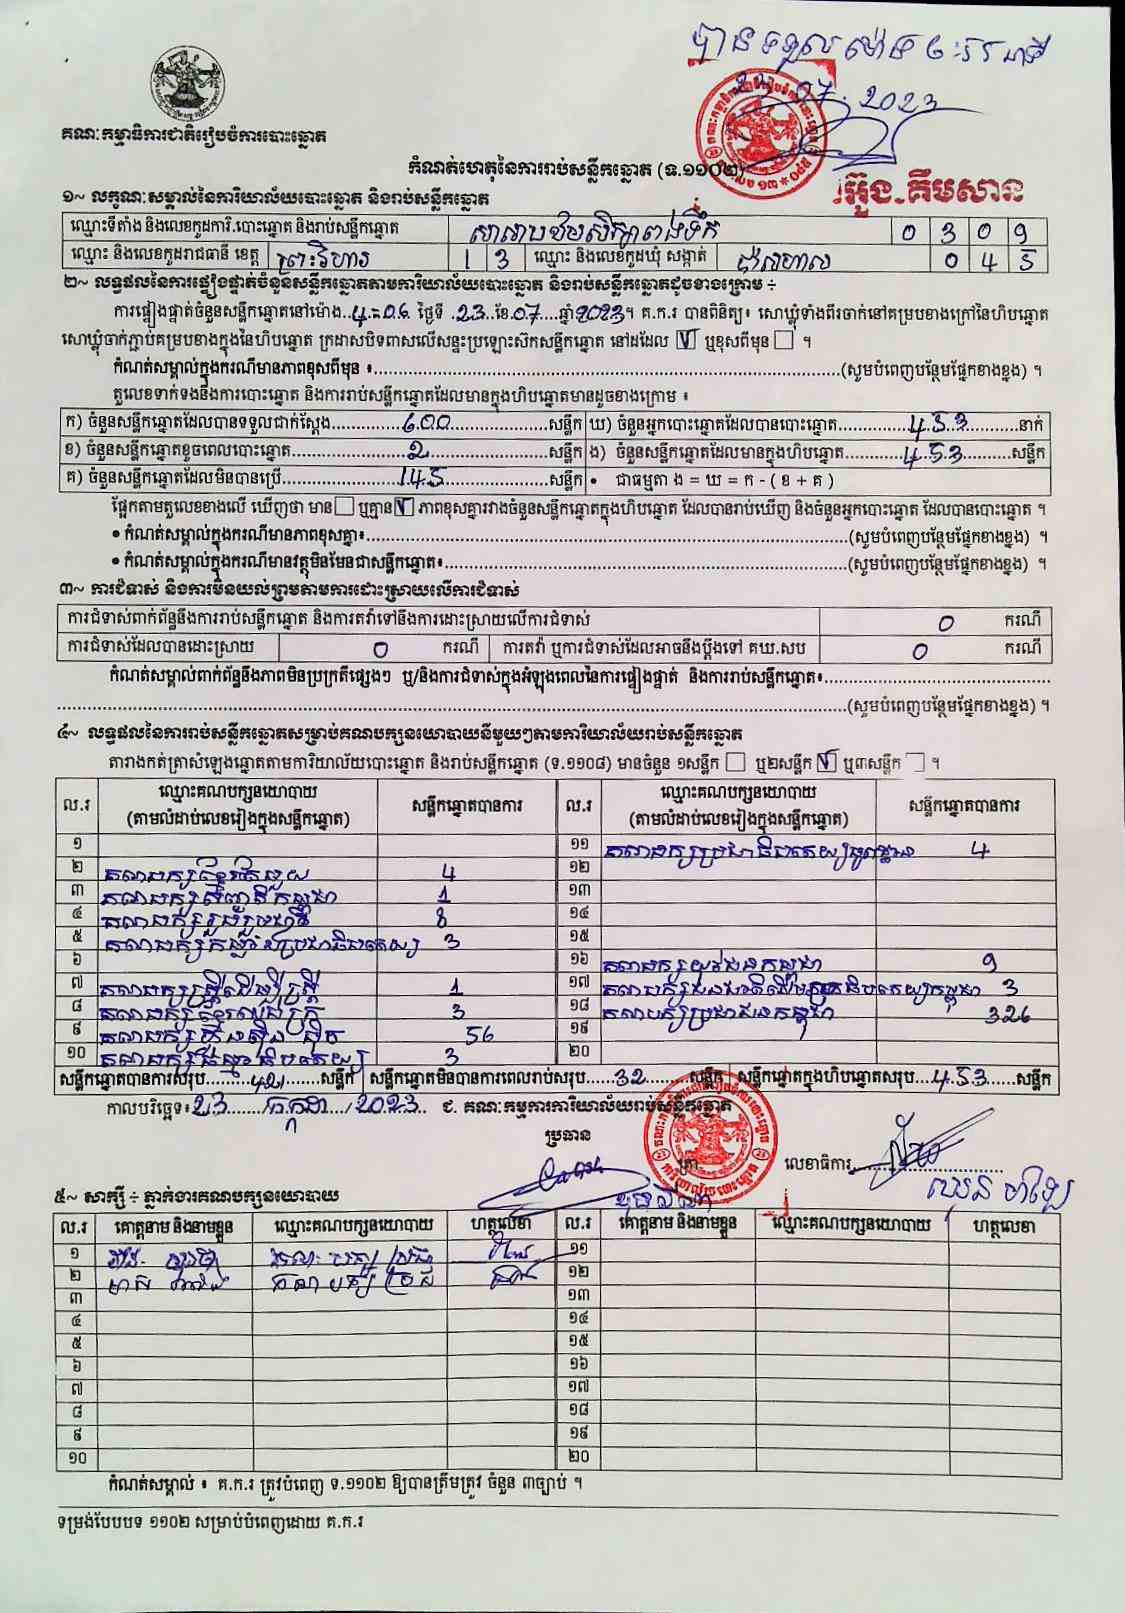 បានទទួលម៉ោង
23.07.2023
គណៈកម្មាធិការជាតិរៀបចំការបោះឆ្នោត
កំណត់ហេតុនៃការរាប់សន្លឹកឆ្នោត (ទ.១១០២)
អ៊ួង.គឹមសាន
១~ លក្ខណៈសម្គាល់នៃការិយាល័យបោះឆ្នោត និងរាប់សន្លឹកឆ្នោត
ឈ្មោះទីតាំង និងលេខកូដការិ.បោះឆ្នោត និងរាប់សន្លឹកឆ្នោត 0 3 0 9
ឈ្មោះ និងលេខកូដរាជធានី ខេត្ត ព្រះវិហារ 1 3 ឈ្មោះ និងលេខកូដឃុំ សង្កាត់ 0 4 5
២~ លទ្ធផលនៃការផ្ទៀងផ្ទាត់ចំនួនសន្លឹកឆ្នោតតាមការិយាល័យបោះឆ្នោត និងរាប់សន្លឹកឆ្នោតដូចខាងក្រោម ÷
ការផ្ទៀងផ្ទាត់ចំនួនសន្លឹកឆ្នោតនៅម៉ោង..4:06 ថ្ងៃទី .23..ខែ.07....ឆ្នាំ2023។ គ.ក.រ បានពិនិត្យ៖ សោឃ្លុំទាំងពីរចាក់នៅគម្របខាងក្រៅនៃហិបឆ្នោត
សោឃ្លុំចាក់ភ្ជាប់គម្របខាងក្នុងនៃហិបឆ្នោត ក្រដាសបិទពាសលើសន្ទះប្រឡោះស៊កសន្លឹកឆ្នោត នៅដដែល ☑ ឬខុសពីមុន ☐ ។
កំណត់សម្គាល់ក្នុងករណីមានភាពខុសពីមុន ៖..........(សូមបំពេញបន្ថែមផ្នែកខាងខ្នង) ។
តួលេខទាក់ទងនឹងការបោះឆ្នោត និងការរាប់សន្លឹកឆ្នោតដែលមានក្នុងហិបឆ្នោតមានដូចខាងក្រោម ៖
ក) ចំនួនសន្លឹកឆ្នោតដែលបានទទួលជាក់ស្តែង..........600..........សន្លឹក ឃ) ចំនួនអ្នកបោះឆ្នោតដែលបានបោះឆ្នោត..........453..........នាក់
ខ) ចំនួនសន្លឹកឆ្នោតខូចពេលបោះឆ្នោត..........2..........សន្លឹក ង) ចំនួនសន្លឹកឆ្នោតដែលមានក្នុងហិបឆ្នោត..........453..........សន្លឹក
គ) ចំនួនសន្លឹកឆ្នោតដែលមិនបានប្រើ..........145..........សន្លឹក • ជាធម្មតា ង = ឃ = ក - ( ខ + គ )
ផ្អែកតាមតួលេខខាងលើ ឃើញថា មាន☐ ឬគ្មាន☑ ភាពខុសគ្នារវាងចំនួនសន្លឹកឆ្នោតក្នុងហិបឆ្នោត ដែលបានរាប់ឃើញ និងចំនួនអ្នកបោះឆ្នោត ដែលបានបោះឆ្នោត ។
• កំណត់សម្គាល់ក្នុងករណីមានភាពខុសគ្នា៖..........(សូមបំពេញបន្ថែមផ្នែកខាងខ្នង) ។
• កំណត់សម្គាល់ក្នុងករណីមានវត្ថុមិនមែនជាសន្លឹកឆ្នោត៖..........(សូមបំពេញបន្ថែមផ្នែកខាងខ្នង) ។
៣~ ការជំទាស់ និងការមិនយល់ព្រមតាមការដោះស្រាយលើការជំទាស់
ការជំទាស់ពាក់ព័ន្ធនឹងការរាប់សន្លឹកឆ្នោត និងការតវ៉ាទៅនឹងការដោះស្រាយលើការជំទាស់ 0 ករណី
ការជំទាស់ដែលបានដោះស្រាយ 0 ករណី ការតវ៉ា ឬការជំទាស់ដែលអាចនឹងប្តឹងទៅ គឃ.សប 0 ករណី
កំណត់សម្គាល់ពាក់ព័ន្ធនឹងភាពមិនប្រក្រតីផ្សេងៗ ឬ/និងការជំទាស់ក្នុងអំឡុងពេលនៃការផ្ទៀងផ្ទាត់ និងការរាប់សន្លឹកឆ្នោត៖..........
..........(សូមបំពេញបន្ថែមផ្នែកខាងខ្នង) ។
៤~ លទ្ធផលនៃការរាប់សន្លឹកឆ្នោតសម្រាប់គណបក្សនយោបាយនីមួយៗតាមការិយាល័យរាប់សន្លឹកឆ្នោត
តារាងកត់ត្រាសំឡេងឆ្នោតតាមការិយាល័យបោះឆ្នោត និងរាប់សន្លឹកឆ្នោត (ទ.១១០៨) មានចំនួន ១សន្លឹក ☐ ឬ២សន្លឹក ☑ ឬ៣សន្លឹក ☐ ។
ល.រ ឈ្មោះគណបក្សនយោបាយ (តាមលំដាប់លេខរៀងក្នុងសន្លឹកឆ្នោត) សន្លឹកឆ្នោតបានការ ល.រ ឈ្មោះគណបក្សនយោបាយ (តាមលំដាប់លេខរៀងក្នុងសន្លឹកឆ្នោត) សន្លឹកឆ្នោតបានការ
១ ១១ គណបក្សប្រជាធិបតេយ្យមូលដ្ឋាន 4
២ គណបក្សខ្មែរតែមួយ 4 ១២
៣ គណបក្សសញ្ជាតិកម្ពុជា 1 ១៣
៤ គណបក្សរួបរួមជាតិ 8 ១៤
៥ គណបក្សកម្លាំងប្រជាធិបតេយ្យ 3 ១៥
៦ ១៦ គណបក្សយុវជនកម្ពុជា 9
៧ គណបក្សស្ត្រីដើម្បីស្ត្រី 1 ១៧ 3
៨ គណបក្ស 3 ១៨ គណបក្សប្រជាជនកម្ពុជា 326
៩ គណបក្សហ៊្វុនស៊ិនប៉ិច 56 ១៩
១០ គណបក្ស 3 ២០
សន្លឹកឆ្នោតបានការសរុប.......421.......សន្លឹក សន្លឹកឆ្នោតមិនបានការពេលរាប់សរុប......32.......សន្លឹក សន្លឹកឆ្នោតក្នុងហិបឆ្នោតសរុប....453.....សន្លឹក
កាលបរិច្ឆេទ៖23....../កក្កដា.../2023.. ជ. គណៈកម្មការការិយាល័យរាប់សន្លឹកឆ្នោត
ប្រធាន
ត្រា លេខាធិការ..........
៥~ សាក្សី ÷ ភ្នាក់ងារគណបក្សនយោបាយ
ល.រ គោត្តនាម និងនាមខ្លួន ឈ្មោះគណបក្សនយោបាយ ហត្ថលេខា ល.រ គោត្តនាម និងនាមខ្លួន ឈ្មោះគណបក្សនយោបាយ ហត្ថលេខា
១ គណៈបក្ស ១១
២ គណបក្ស ១២
៣ ១៣
៤ ១៤
៥ ១៥
៦ ១៦
៧ ១៧
៨ ១៨
៩ ១៩
១០ ២០
កំណត់សម្គាល់ ៖ គ.ក.រ ត្រូវបំពេញ ទ.១១០២ ឱ្យបានត្រឹមត្រូវ ចំនួន ៣ច្បាប់ ។
ទម្រង់បែបបទ ១១០២ សម្រាប់បំពេញដោយ គ.ក.រ